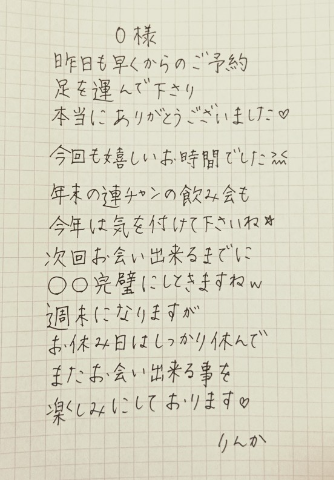 O様
昨日も早くからのご予約
足を運んで下さり
本当にありがとうございました♡
今回も嬉しいお時間でした
年末の連チャンの飲み会も
今年は気を付けて下さいね★
次回お会い出来るまでに
○○完璧にしときますねw
週末になりますが
お休み日はしっかり休んで
またお会い出来る事を
楽しみにしております♡
りんか